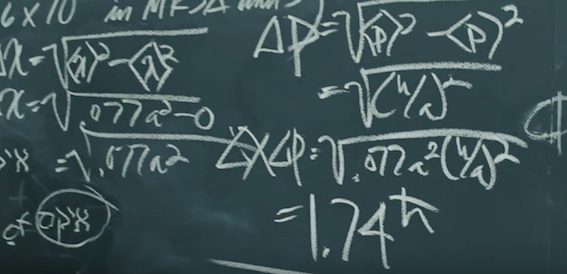 6 x 10 in MKSA units
Δx = √⟨x⟩² - ⟨x⟩²
x = √.077a² - 0
= √.077a²
ΔP = √⟨p⟩² - ⟨p⟩²
= √(h/a)²
ΔXΔP = √.077a²(h/a)²
= 1.74 ħ
of